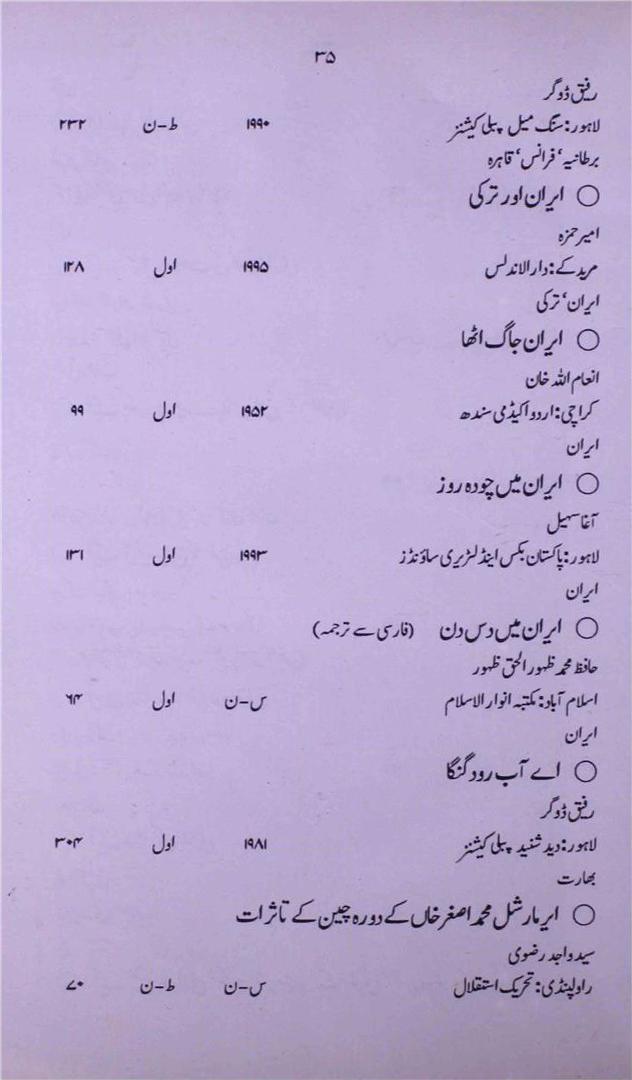 ۳۵
رفیق ڈوگر
لاہور: سنگ میل پبلی کیشنز ۱۹۹۰ ط-ن ۲۳۲
برطانیہ، فرانس، قاہرہ
○ ایران اور ترکی
امیر حمزہ
مریدکے: دارالاندلس ۱۹۹۵ اول ۱۲۸
ایران، ترکی
○ ایران جاگ اٹھا
انعام اللہ خان
کراچی: اردو اکیڈمی سندھ ۱۹۵۲ اول ۹۹
ایران
○ ایران میں چودہ روز
آغا سہیل
لاہور: پاکستان بکس اینڈ لٹریری ساؤنڈز ۱۹۹۳ اول ۱۳۱
ایران
○ ایران میں دس دن (فارسی سے ترجمہ)
حافظ محمد ظہور الحق ظہور
اسلام آباد: مکتبہ انوار الاسلام س-ن اول ۶۴
ایران
○ اے آب رود گنگا
رفیق ڈوگر
لاہور: دید شنید پبلی کیشنز ۱۹۸۱ اول ۳۰۴
بھارت
○ ایر مارشل محمد اصغر خاں کے دورہ چین کے تاثرات
سید واجد رضوی
راولپنڈی: تحریک استقلال س-ن ط-ن ۷۰